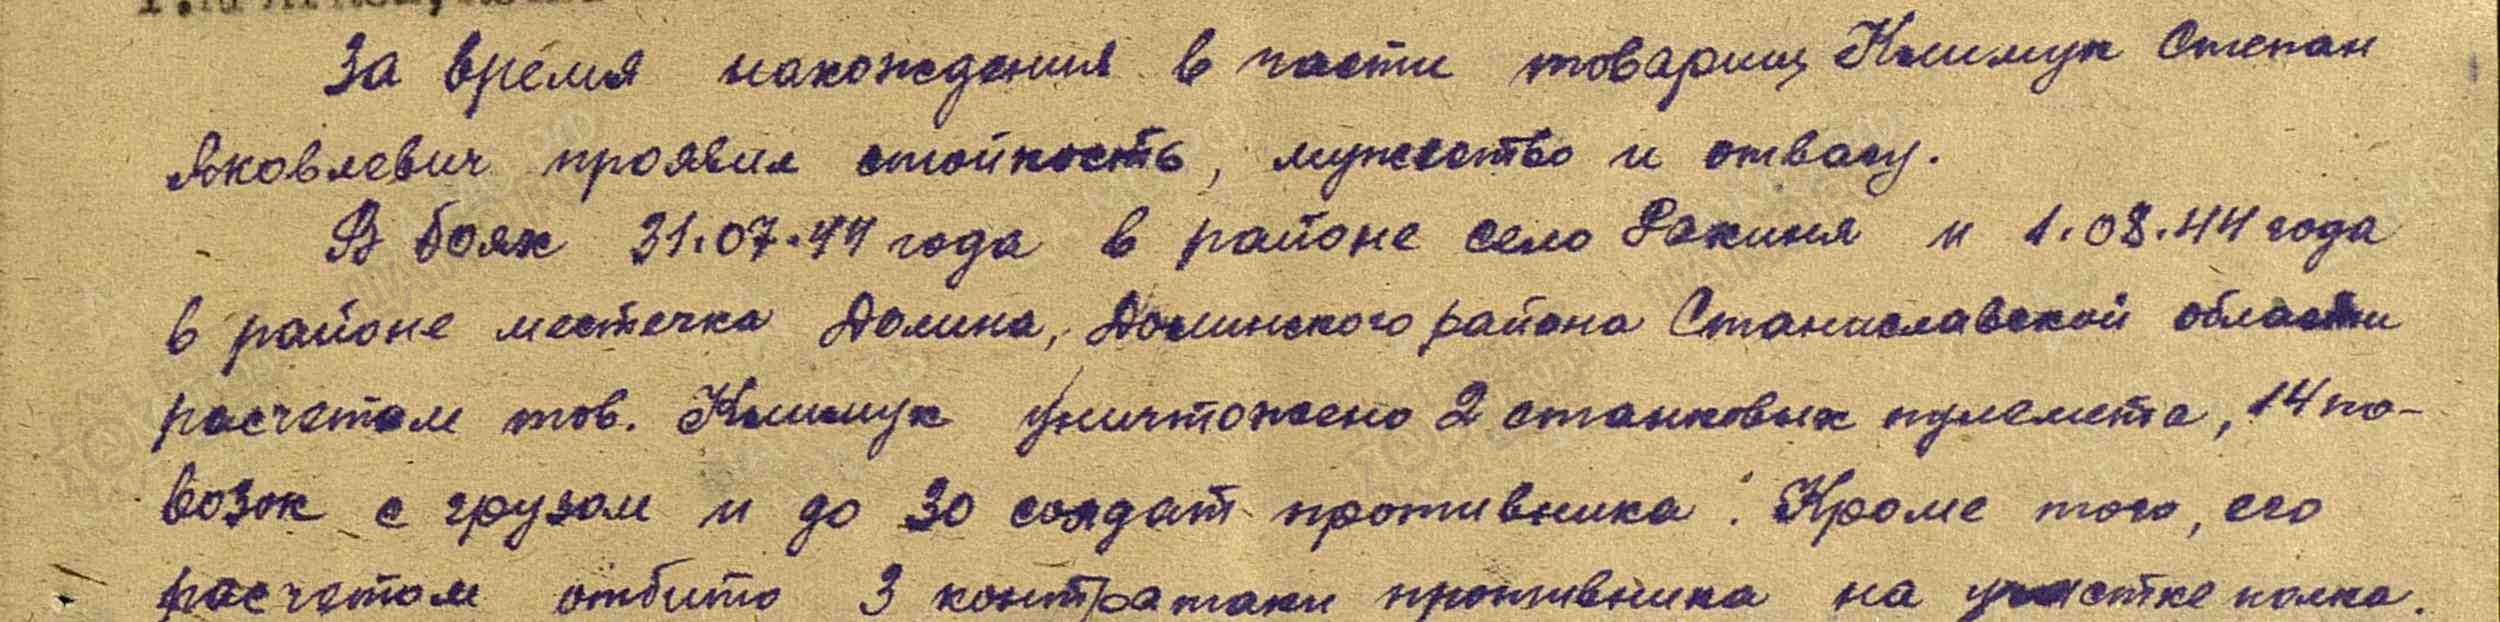 За время нахождения в части товарищ Климук Степан
Яковлевич проявил стойкость, мужество и отвагу.
В боях 31.07.44 года в районе село Ракиня и 1.08.44 года
в районе местечка Долина, Долинского района Станиславской области
расчетом тов. Климук уничтожено 2 станковых пулемета, 14 по-
возок с грузом и до 30 солдат противника. Кроме того, его
расчетом отбито 3 контратаки противника на участке полка.